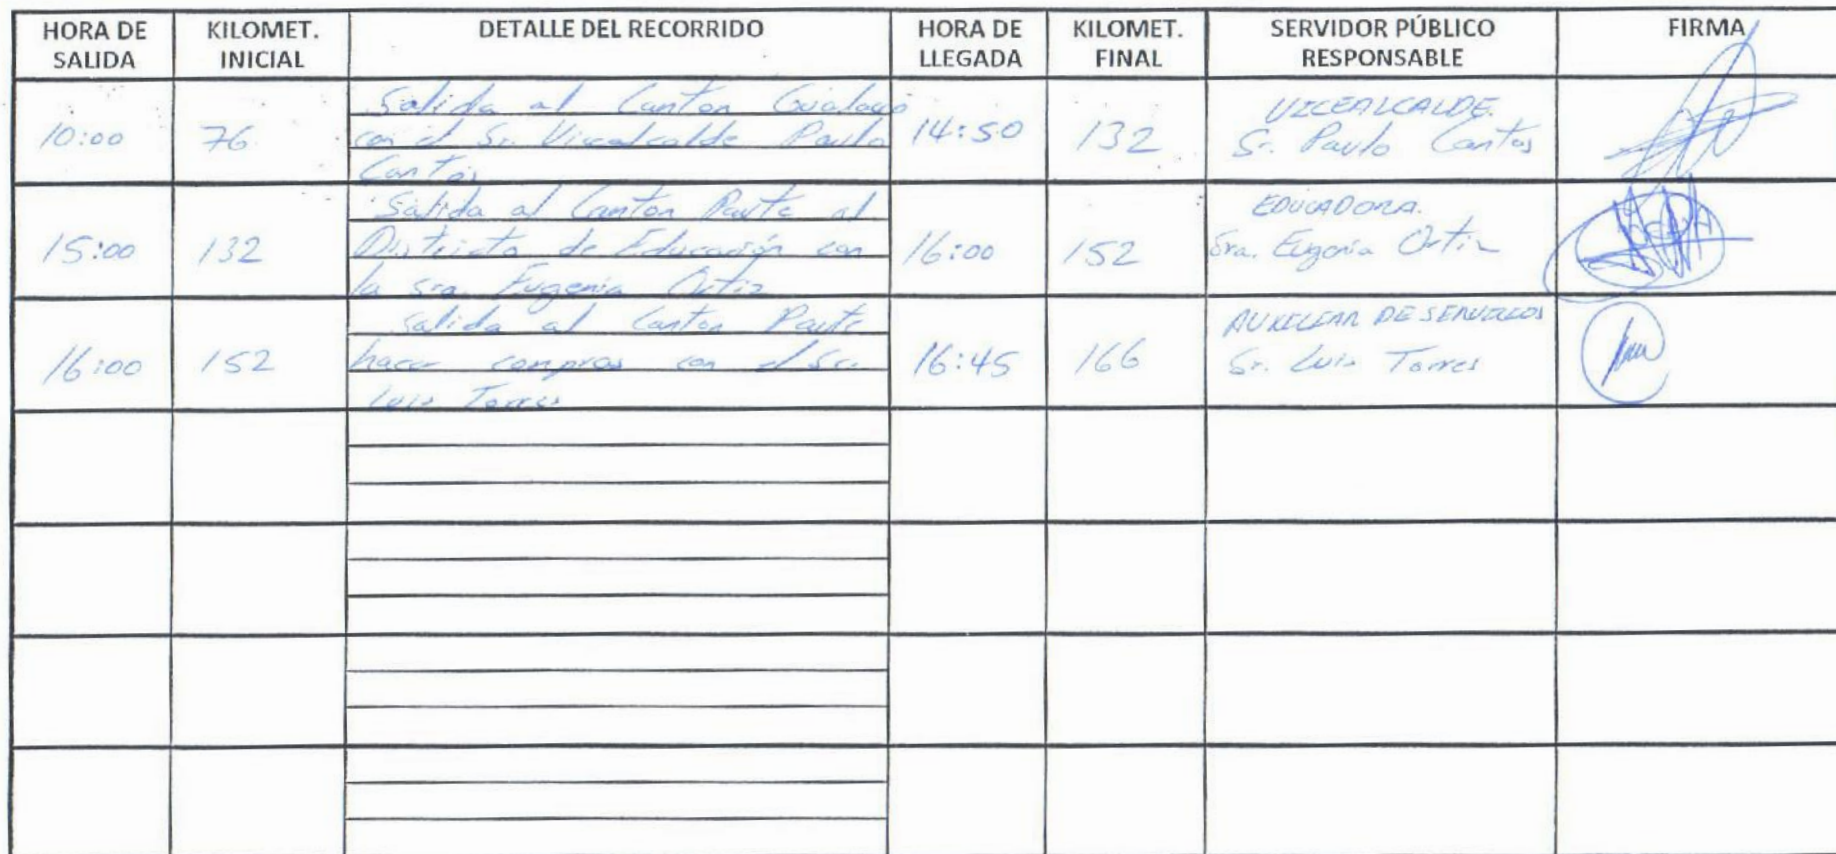 HORA DE SALIDA KILOMET. INICIAL DETALLE DEL RECORRIDO HORA DE LLEGADA KILOMET. FINAL SERVIDOR PÚBLICO RESPONSABLE FIRMA
10:00 76
Salida al Canton Gualaceo
con el Sr. Vicealcalde Paulo
Cantos
14:50 132
VICEALCALDE.
Sr. Paulo Cantos
15:00 132
Salida al Canton Paute al
Distrito de Educación con
la sra. Eugenia Ortiz
16:00 152
EDUCADORA.
Sra. Eugenia Ortiz
16:00 152
Salida al Canton Paute
hacer compras con el Sr.
Luis Torres
16:45 166
AUXILIAR DE SERVICIOS
Sr. Luis Torres